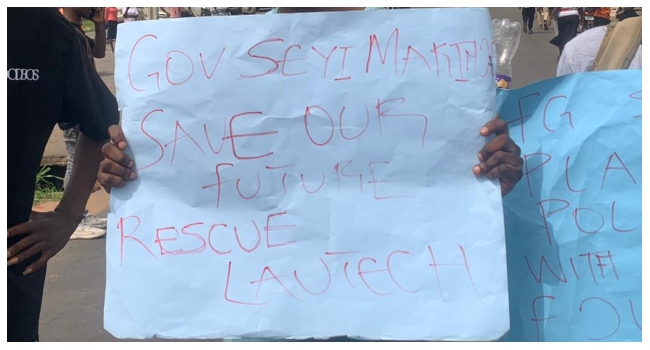 GOV SEYI MAKINDE
SAVE OUR
FUTURE
RESCUE
LAUTECH
FG
PLA
POL
WITH